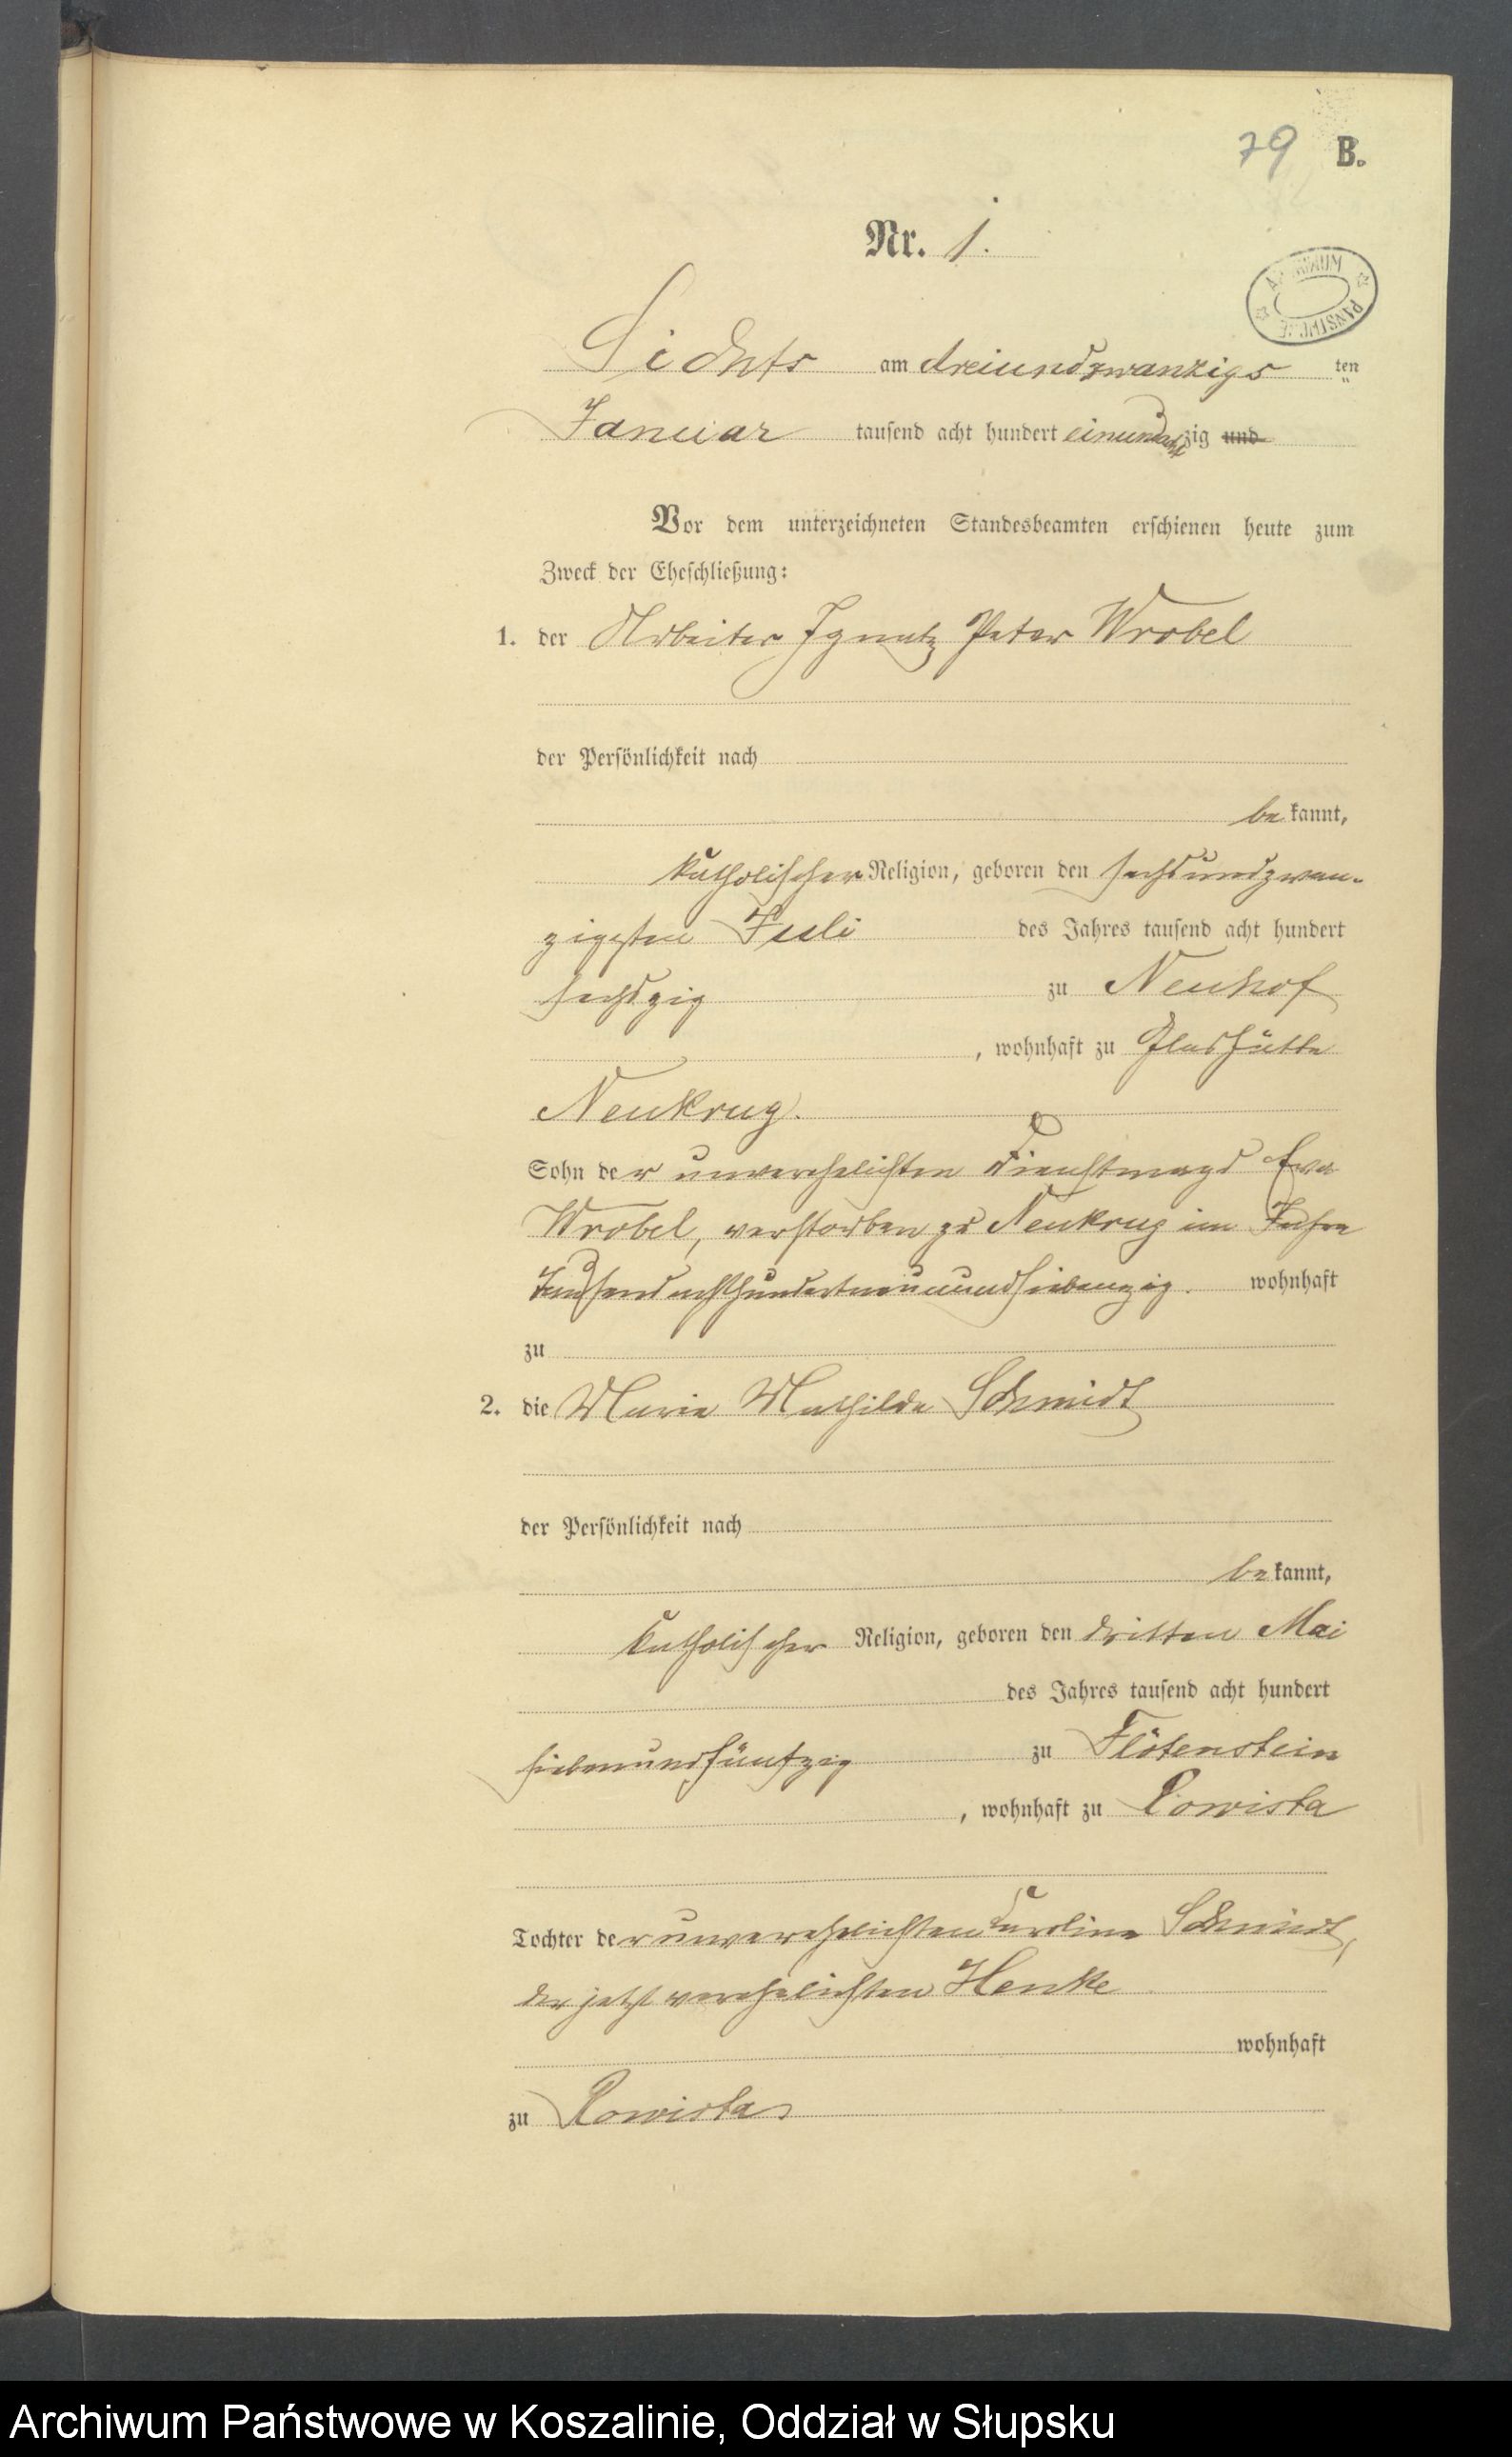 79 B.
Nr. 1.
ARCHIWUM PAŃSTWOWE
Lichts am dreiundzwanzigs ten
Januar tausend acht hundert einundachtzig und
Vor dem unterzeichneten Standesbeamten erschienen heute zum
Zweck der Eheschließung:
1. der Arbeiter Ignatz Peter Wrobel
der Persönlichkeit nach
be kannt,
katholischer Religion, geboren den sechsundzwan-
zigsten Juli des Jahres tausend acht hundert
sechszig zu Neuhof
, wohnhaft zu Glashütte
Neukrug.
Sohn der unverehelichten Dienstmagd Eva
Wrobel, verstorben zu Neukrug im Jahre
Tausendachthundertneunundsiebenzig. wohnhaft
zu
2. die Maria Mathilde Schmidt
der Persönlichkeit nach
be kannt,
katholischer Religion, geboren den dritten Mai
des Jahres tausend acht hundert
siebenundfünfzig zu Flötenstein
, wohnhaft zu Powista
Tochter der unverehelichten Caroline Schmidt,
der jetzt verehelichten Henke
wohnhaft
zu
Archiwum Państwowe w Koszalinie, Oddział w Słupsku